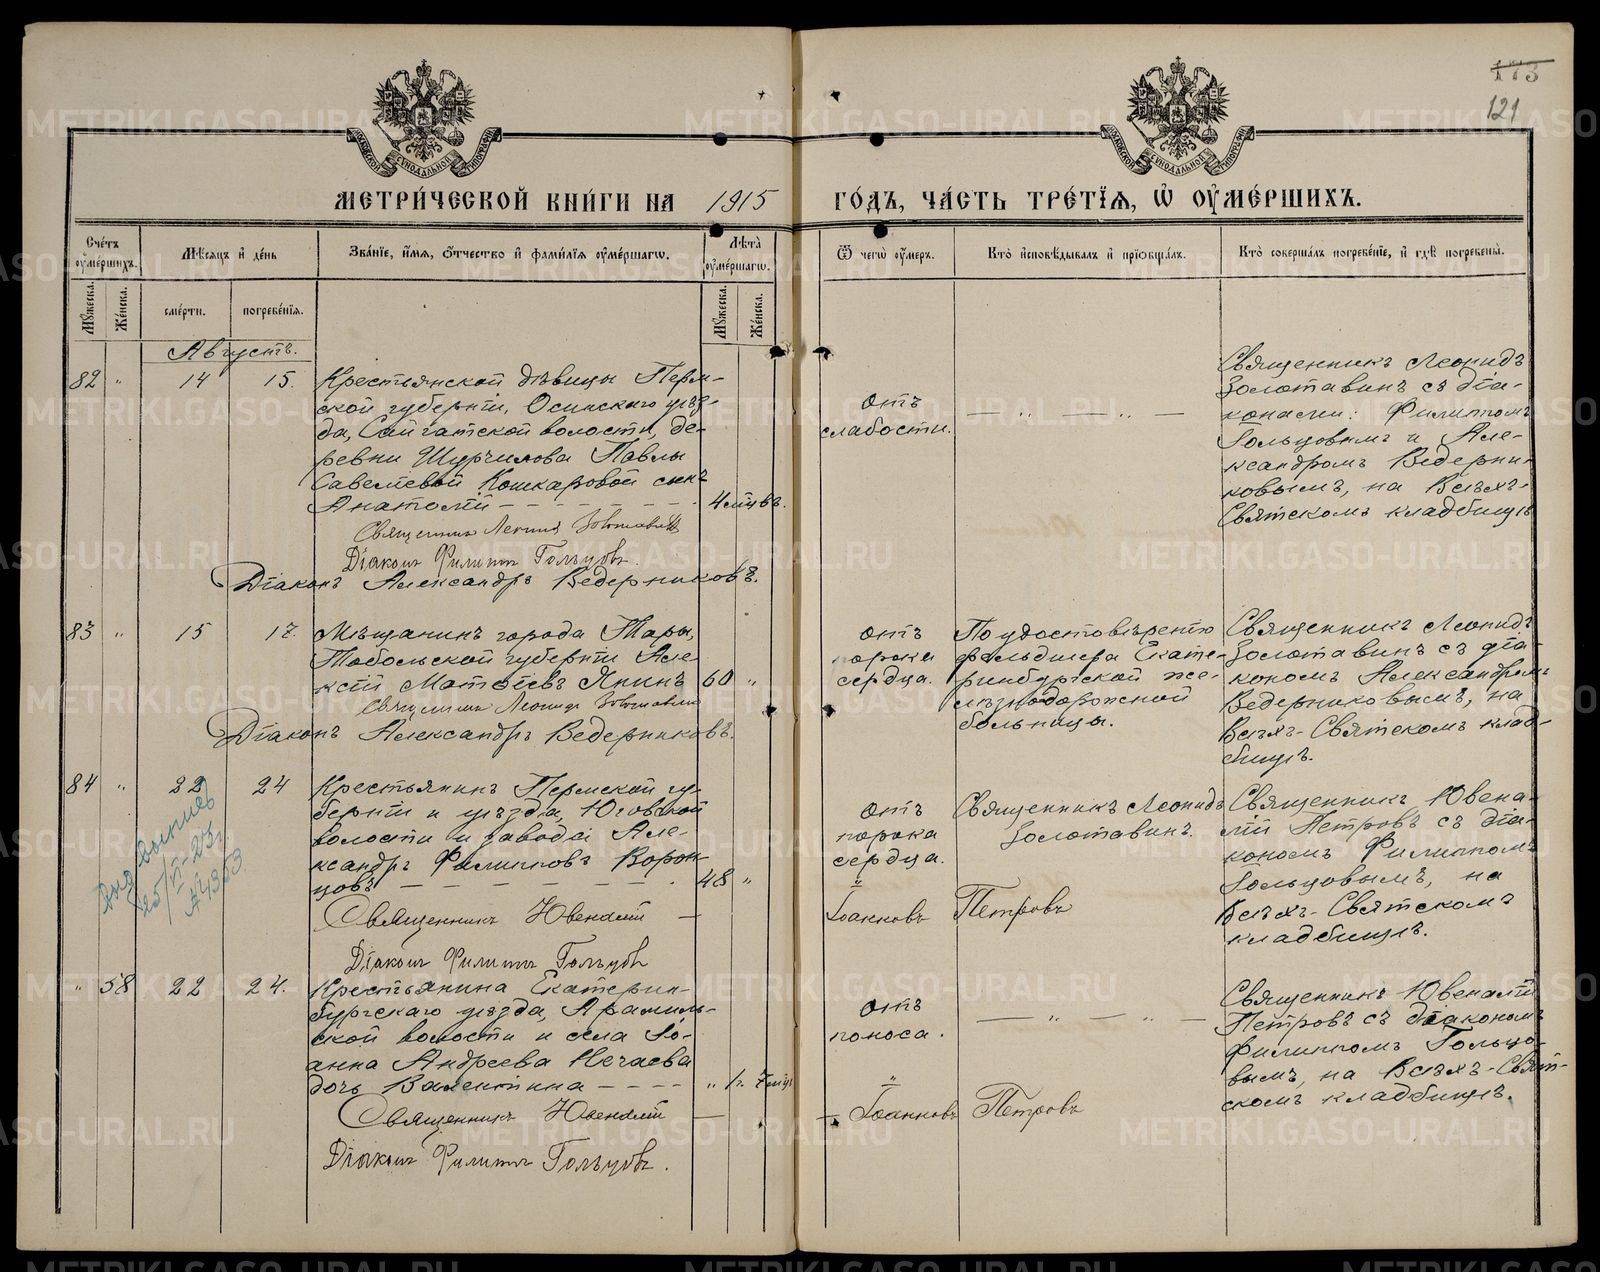 173
121
МЕТРИ́ЧЕСКОЙ КНИ́ГИ НА 1915 ГО́ДЪ, ЧА́СТЬ ТРЕ́ТІѦ, Ѡ ОУМЕ́РШИХЪ.
Сче́тъ оуме́ршихъ.
Мѣ́сяцъ и де́нь
Зва́ніе, и́мя, о́тчество и фами́лія оуме́ршагѡ.
Лѣ́та оуме́ршагѡ.
Ѿ чегѡ̀ оу́меръ.
Кто̀ исповѣ́дывалъ и пріобща́лъ.
Кто̀ соверша́лъ погребе́ніе, и гдѣ̀ погребены̀.
Му́жеска.
Же́нска.
сме́рти.
погребе́нія.
Му́жеска.
Же́нска.
Августъ.
82 " 14 15.
Крестьянской дѣвицы Перм-
ской губерніи, Осинскаго уѣз-
да, Сайгатской волости, де-
ревни Шурчилова Павлы
Савеліевой Кошкаровой сынъ
Анатолій - - - - - 4 мцѣв.
Священникъ Леонид Золотавинъ
Діаконъ Филиппъ Гольцовъ.
Діаконъ Александръ Ведерниковъ.
отъ
слабости.
— " — " —
Священникъ Леонидъ
Золотавинъ съ діа-
конами: Филиппомъ
Гольцовымъ и Але-
ксандромъ Ведерни-
ковымъ, на Всѣхъ-
Святскомъ кладбищѣ
83 " 15 17.
Мѣщанинъ города Тары,
Тобольской губерніи Але-
ксій Матѳіевъ Янинъ 60 "
Священникъ Леонидъ Золотавинъ
Діаконъ Александръ Ведерниковъ.
отъ
порока
сердца.
По удостовѣренію
фельдшера Екате-
ринбургской же-
лѣзнодорожной
больницы.
Священникъ Леонидъ
Золотавинъ съ діа-
кономъ Александромъ
Ведерниковымъ, на
Всѣхъ-Святскомъ клад-
бищѣ.
84 " 22 24
Крестьянинъ Пермской гу-
берніи и уѣзда, Юговской
волости и завода Але-
ксандръ Филипповъ Ворон-
цовъ — — — — — 48 "
Священникъ Ювеналій —
Іоанновъ Петровъ
Діаконъ Филиппъ Гольцовъ
отъ
порока
сердца.
Священникъ Леонидъ
Золотавинъ.
Священникъ Ювена-
лій Петровъ съ діа-
кономъ Филиппомъ
Гольцовымъ, на
Всѣхъ-Святскомъ
кладбищѣ.
" 58 22 24.
Крестьянина Екатерин-
бургскаго уѣзда, Арамиль-
ской волости и села Іо-
анна Андреева Нечаева
дочь Валентина - - - - " 1 г. 7 мцѣ
Священникъ Ювеналій —
— Іоанновъ Петровъ
Діаконъ Филиппъ Гольцовъ.
отъ
поноса.
— " — " —
Священникъ Ювеналій
Петровъ съ діакономъ
Филиппомъ Гольцо-
вымъ, на Всѣхъ-Свят-
скомъ кладбищѣ.
METRIKI.GASO-URAL.RU